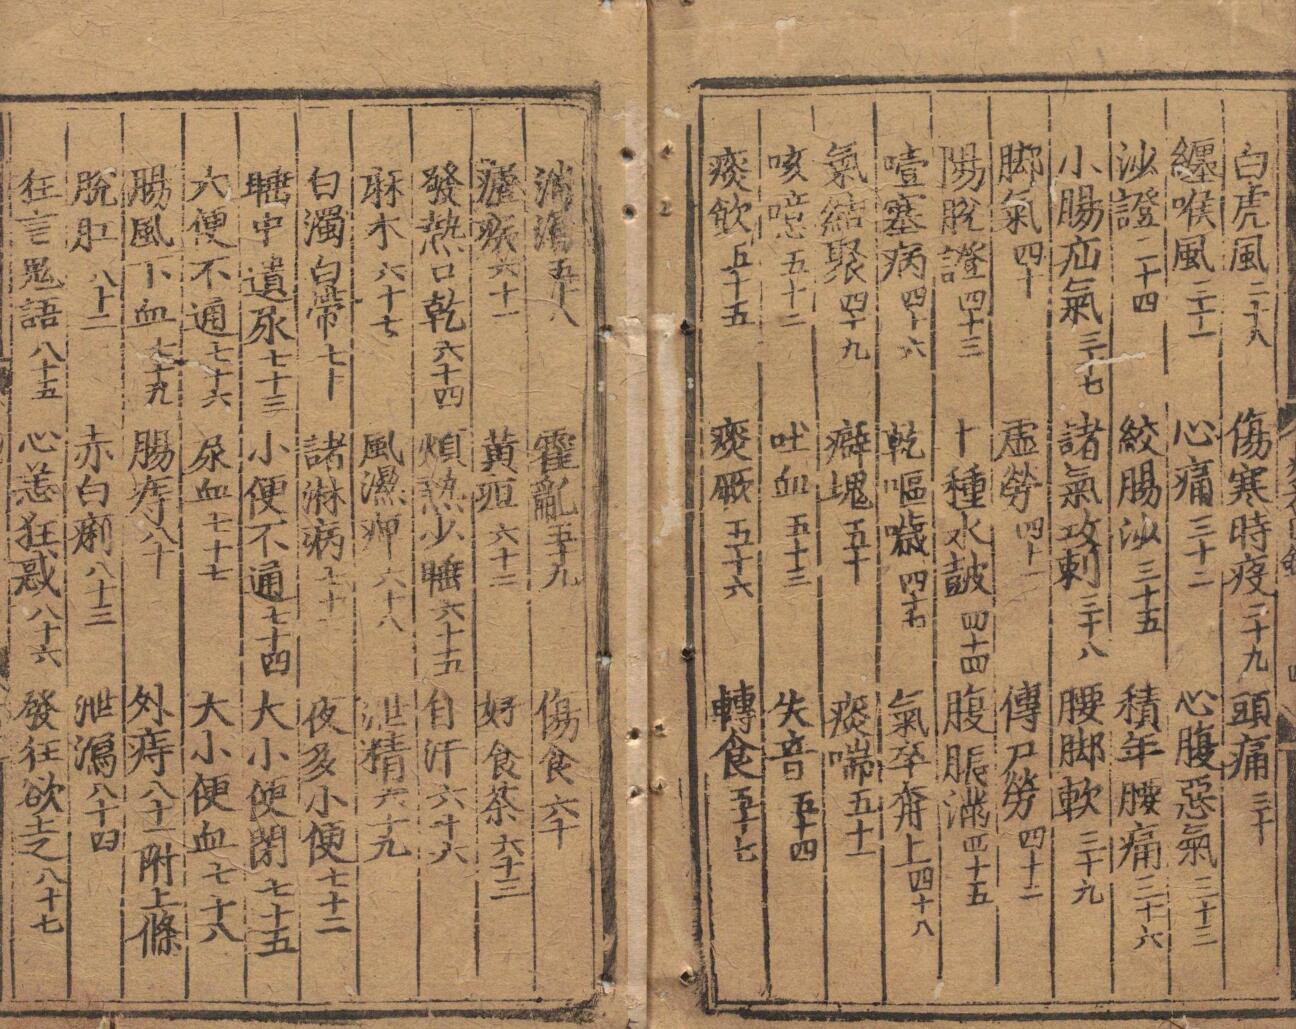 白虎風二十八 傷寒時疫二十九 頭痛三十
纏喉風三十一 心痛三十二 心腹惡氣三十三
沙證三十四 絞腸沙三十五 積年腰痛三十六
小腸疝氣三十七 諸氣攻刺三十八 腰脚軟三十九
脚氣四十 虛勞四十一 傳尸勞四十二
陽脫證四十三 十種水皷四十四 腹脹滿四十五
噎塞病四十六 乾嘔噦四十七 氣卒奔上四十八
氣結聚四十九 癖塊五十 痰喘五十一
咳噫五十二 吐血五十三 失音五十四
痰飲五十五 痰厥五十六 轉食五十七
消渴五十八 霍亂五十九 傷食六十
瘧疾六十一 黃疸六十二 好食茶六十三
發熱口乾六十四 煩熱少睡六十五 自汗六十六
麻木六十七 風濕痹六十八 泄精六十九
白濁白帶七十 諸淋病七十一 夜多小便七十二
睡中遺尿七十三 小便不通七十四 大小便閉七十五
大便不通七十六 尿血七十七 大小便血七十八
腸風下血七十九 腸痔八十 外痔八十一附上條
脫肛八十二 赤白痢八十三 泄瀉八十四
狂言鬼語八十五 心恙狂惑八十六 發狂欲走八十七